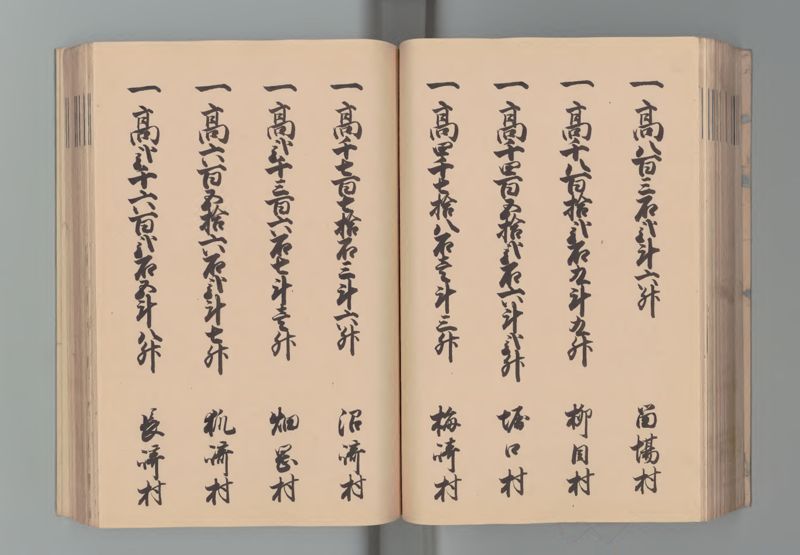 一高八百三石弐斗六升 苗場村
一高千八百拾弐石九斗九升 柳目村
一高千四百五拾弐石六斗弐升 堀口村
一高四千七拾八石壱斗三升 梅崎村
一高千七百七拾石三斗六升 沼崎村
一高弐千三百六石七斗壱升 畑岡村
一高六百五拾六石弐斗七升 狐崎村
一高弐千六百弐石五斗八升 長崎村